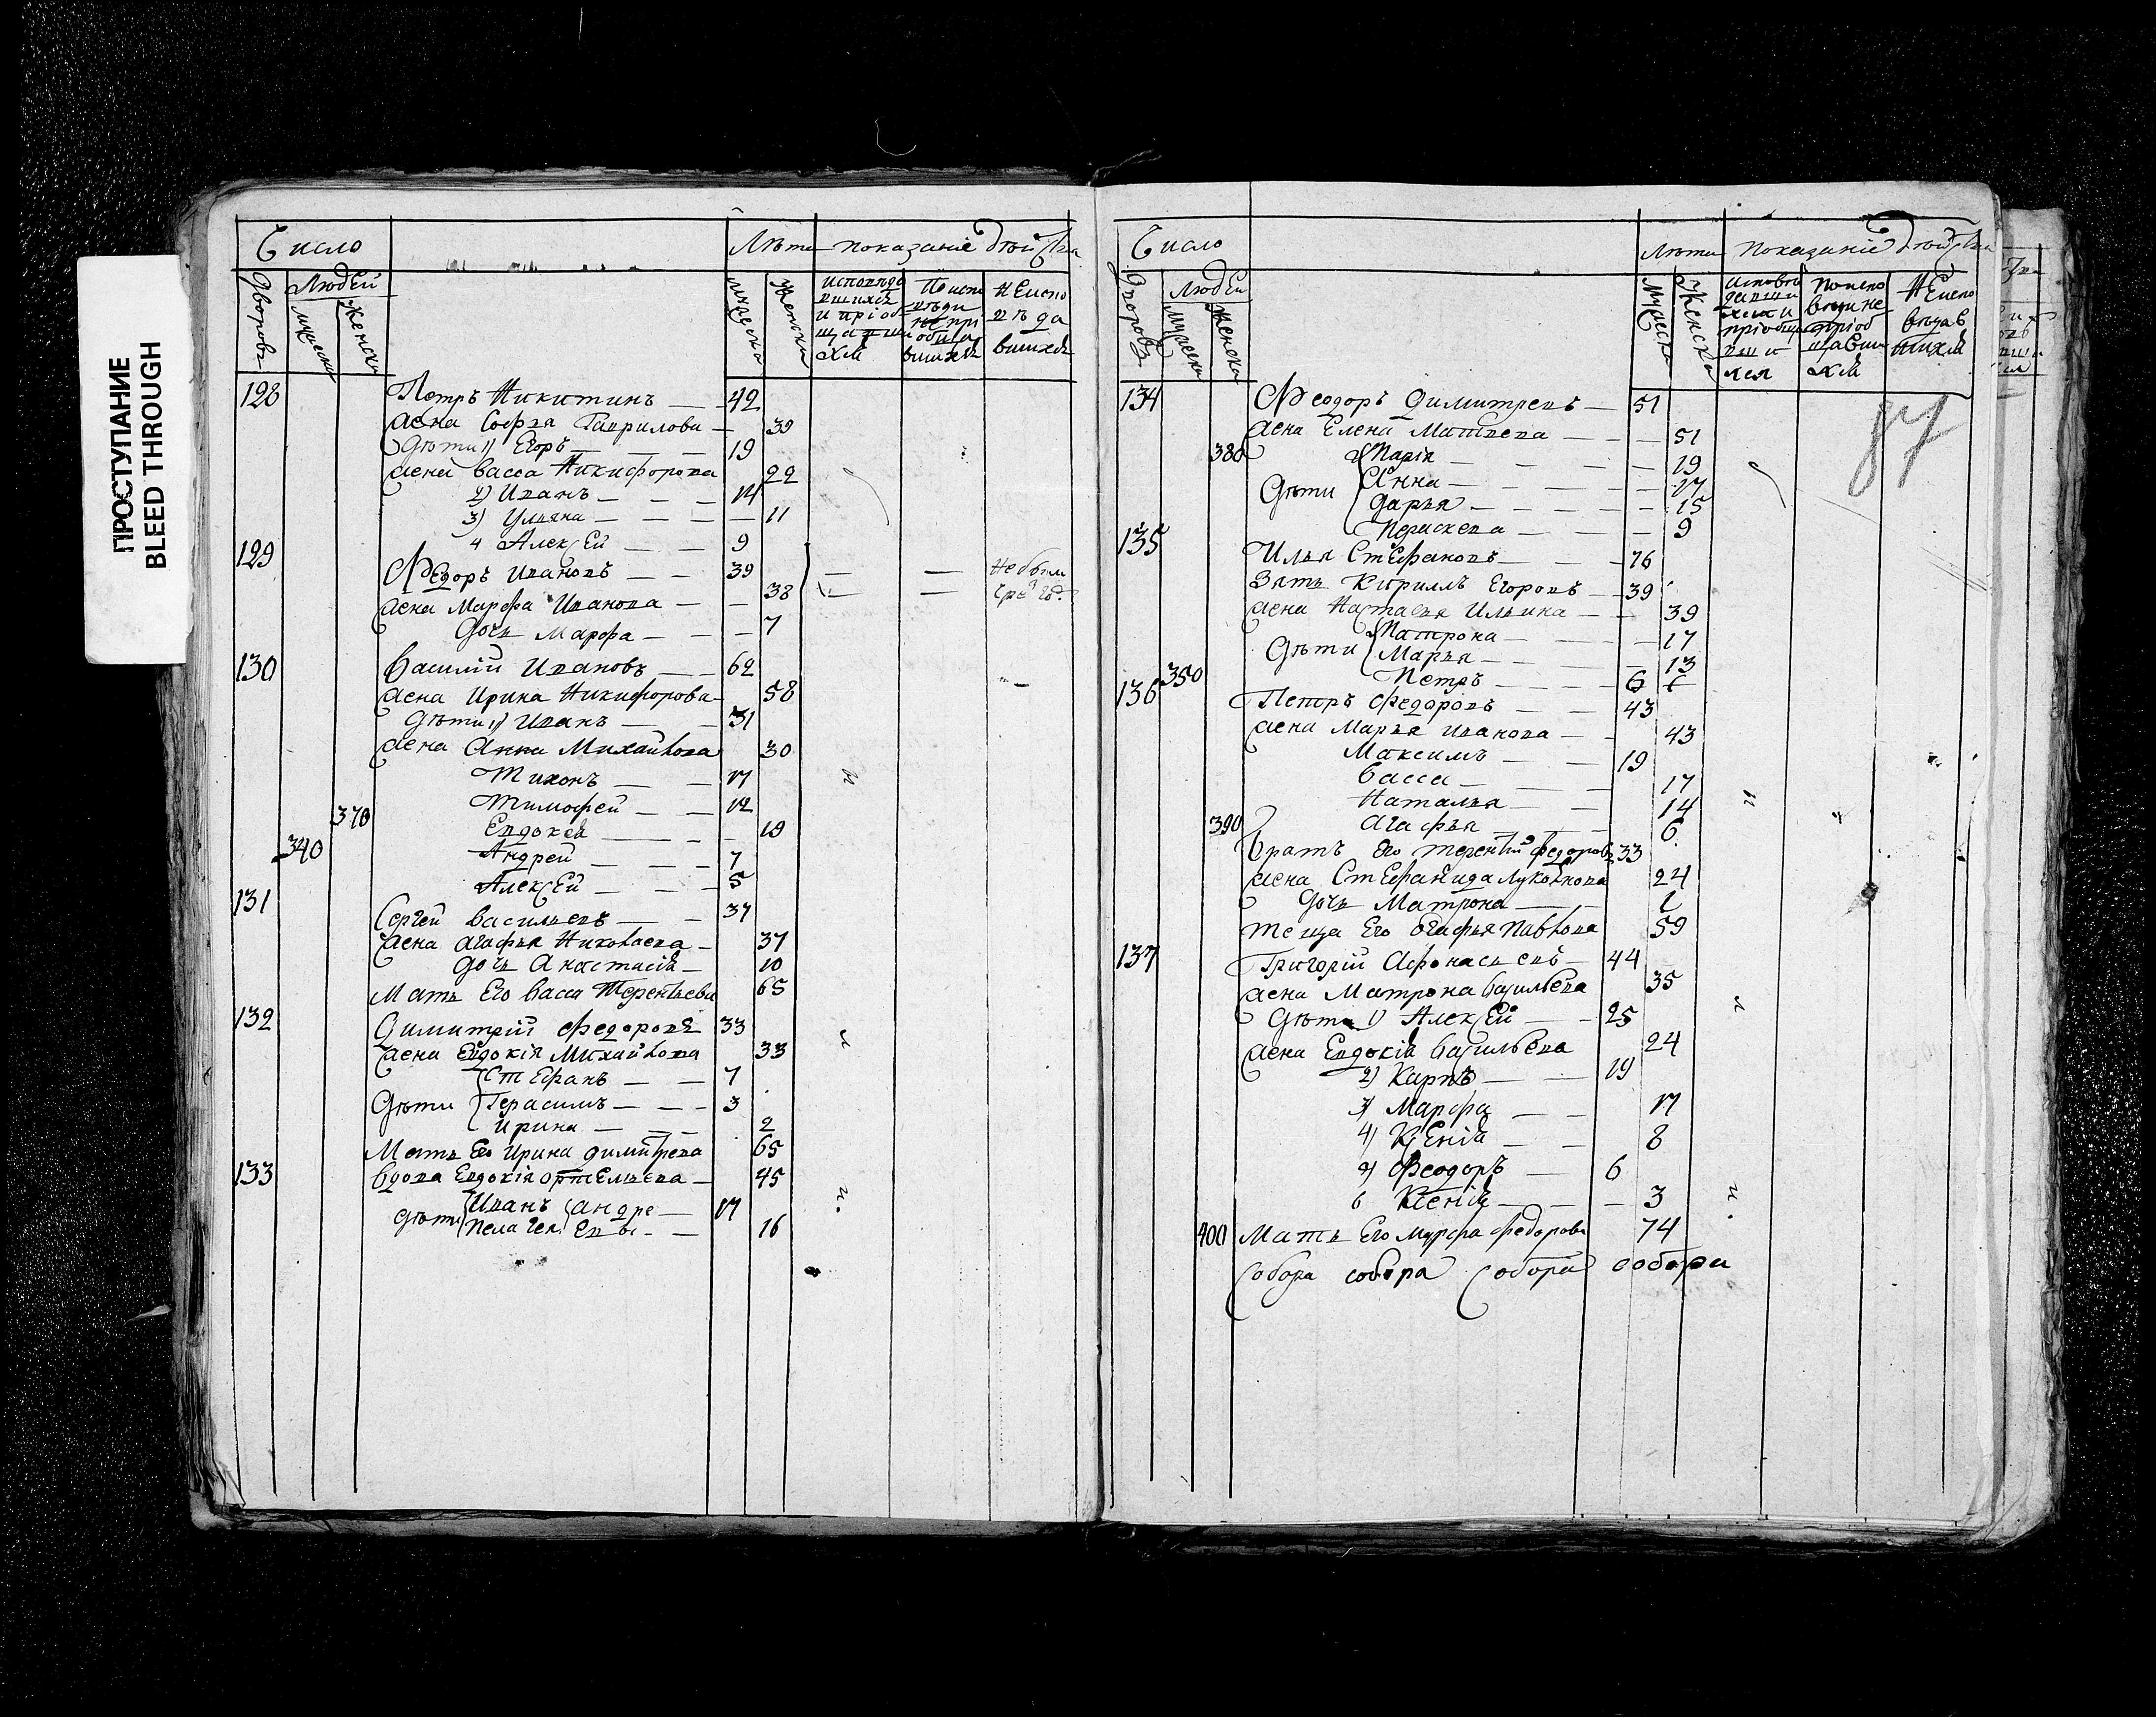 ПРОСТУПАНИЕ
BLEED THROUGH
Число Лѣта показаніе дѣйства
Дворовъ Людей
мужеска женска мужеска женска
исповѣда
вшихся
и пріоб
щавши
хся
По испо
вѣди
не прі
обща
вшихся
Неиспо
вѣда
вшихся
128 Петръ Никитинъ 42
жена Софья Гаврилова 39
Дѣти 1) Егоръ 19
жена Васса Никифорова 22
2) Иванъ 14
3) Ульяна 11
4 Алексѣй 9
129 Ѳедоръ Ивановъ 39 Не были
жена Марфа Иванова 38
дочь Марфа 7
130 Василій Ивановъ 62
жена Ирина Никифорова 58
Дѣти 1) Иванъ 31
жена Анна Михайлова 30
Тихонъ 17
Тимофей 12
370 Евдокея 10
340 Андрей 7
Алексѣй 5
131 Сергей Васильевъ 37
жена Агафья Николаева 37
дочь Анастасія 10
Мать Его Васса Терентьева 65
132 Димитрій Федоровъ 33
жена Евдокія Михайлова 33
Стефанъ 7
Дѣти Герасимъ 3
Ирина 2
Мать Ео Ирина Димитрева 65
133 Вдова Евдокія Ортемьева 45
Дѣти Иванъ Андре 17
Пелагея евы 16
Число Лѣта Показаніе дѣйства
Дворовъ Людей
мужеска женска мужеска женска
исповѣ
давши
хся и
пріобщ
вши
хся
По испо
вѣди не
пріоб
щавши
хся
Неиспо
вѣдав
шихся
87
134 Ѳеодоръ Димитревъ 51
жена Елена Матвева 51
380 Марія 19
Дѣти Анна 17
Дарья 15
Пераскева 9
135 Илья Стефановъ 76
Зять Кириллъ Егоровъ 39
жена Настасья Ильина 39
Матрона 17
Дѣти Марья 13
350 Петръ 6
136 Петръ Федоровъ 43
жена Марья Иванова 43
Максимъ 19
Васса 17
Наталья 14
390 Агафья 6
Братъ его Терентій Федоровъ 33
жена Стефанида Луконнова 24
дочь Матрона
теща Его Огафья Павлова 59
137 Григорій Афонасьевъ 44
жена Матрона Васильева 35
Дѣти 1) Алексѣй 25
жена Евдокія Васильева 24
2) Карпъ 19
3) Марфа 17
4) Ксенія 8
Феодоръ 6
6 Ксенія 3
400 Мать Его Марфа Федорова 74
Собора собора Собора собора